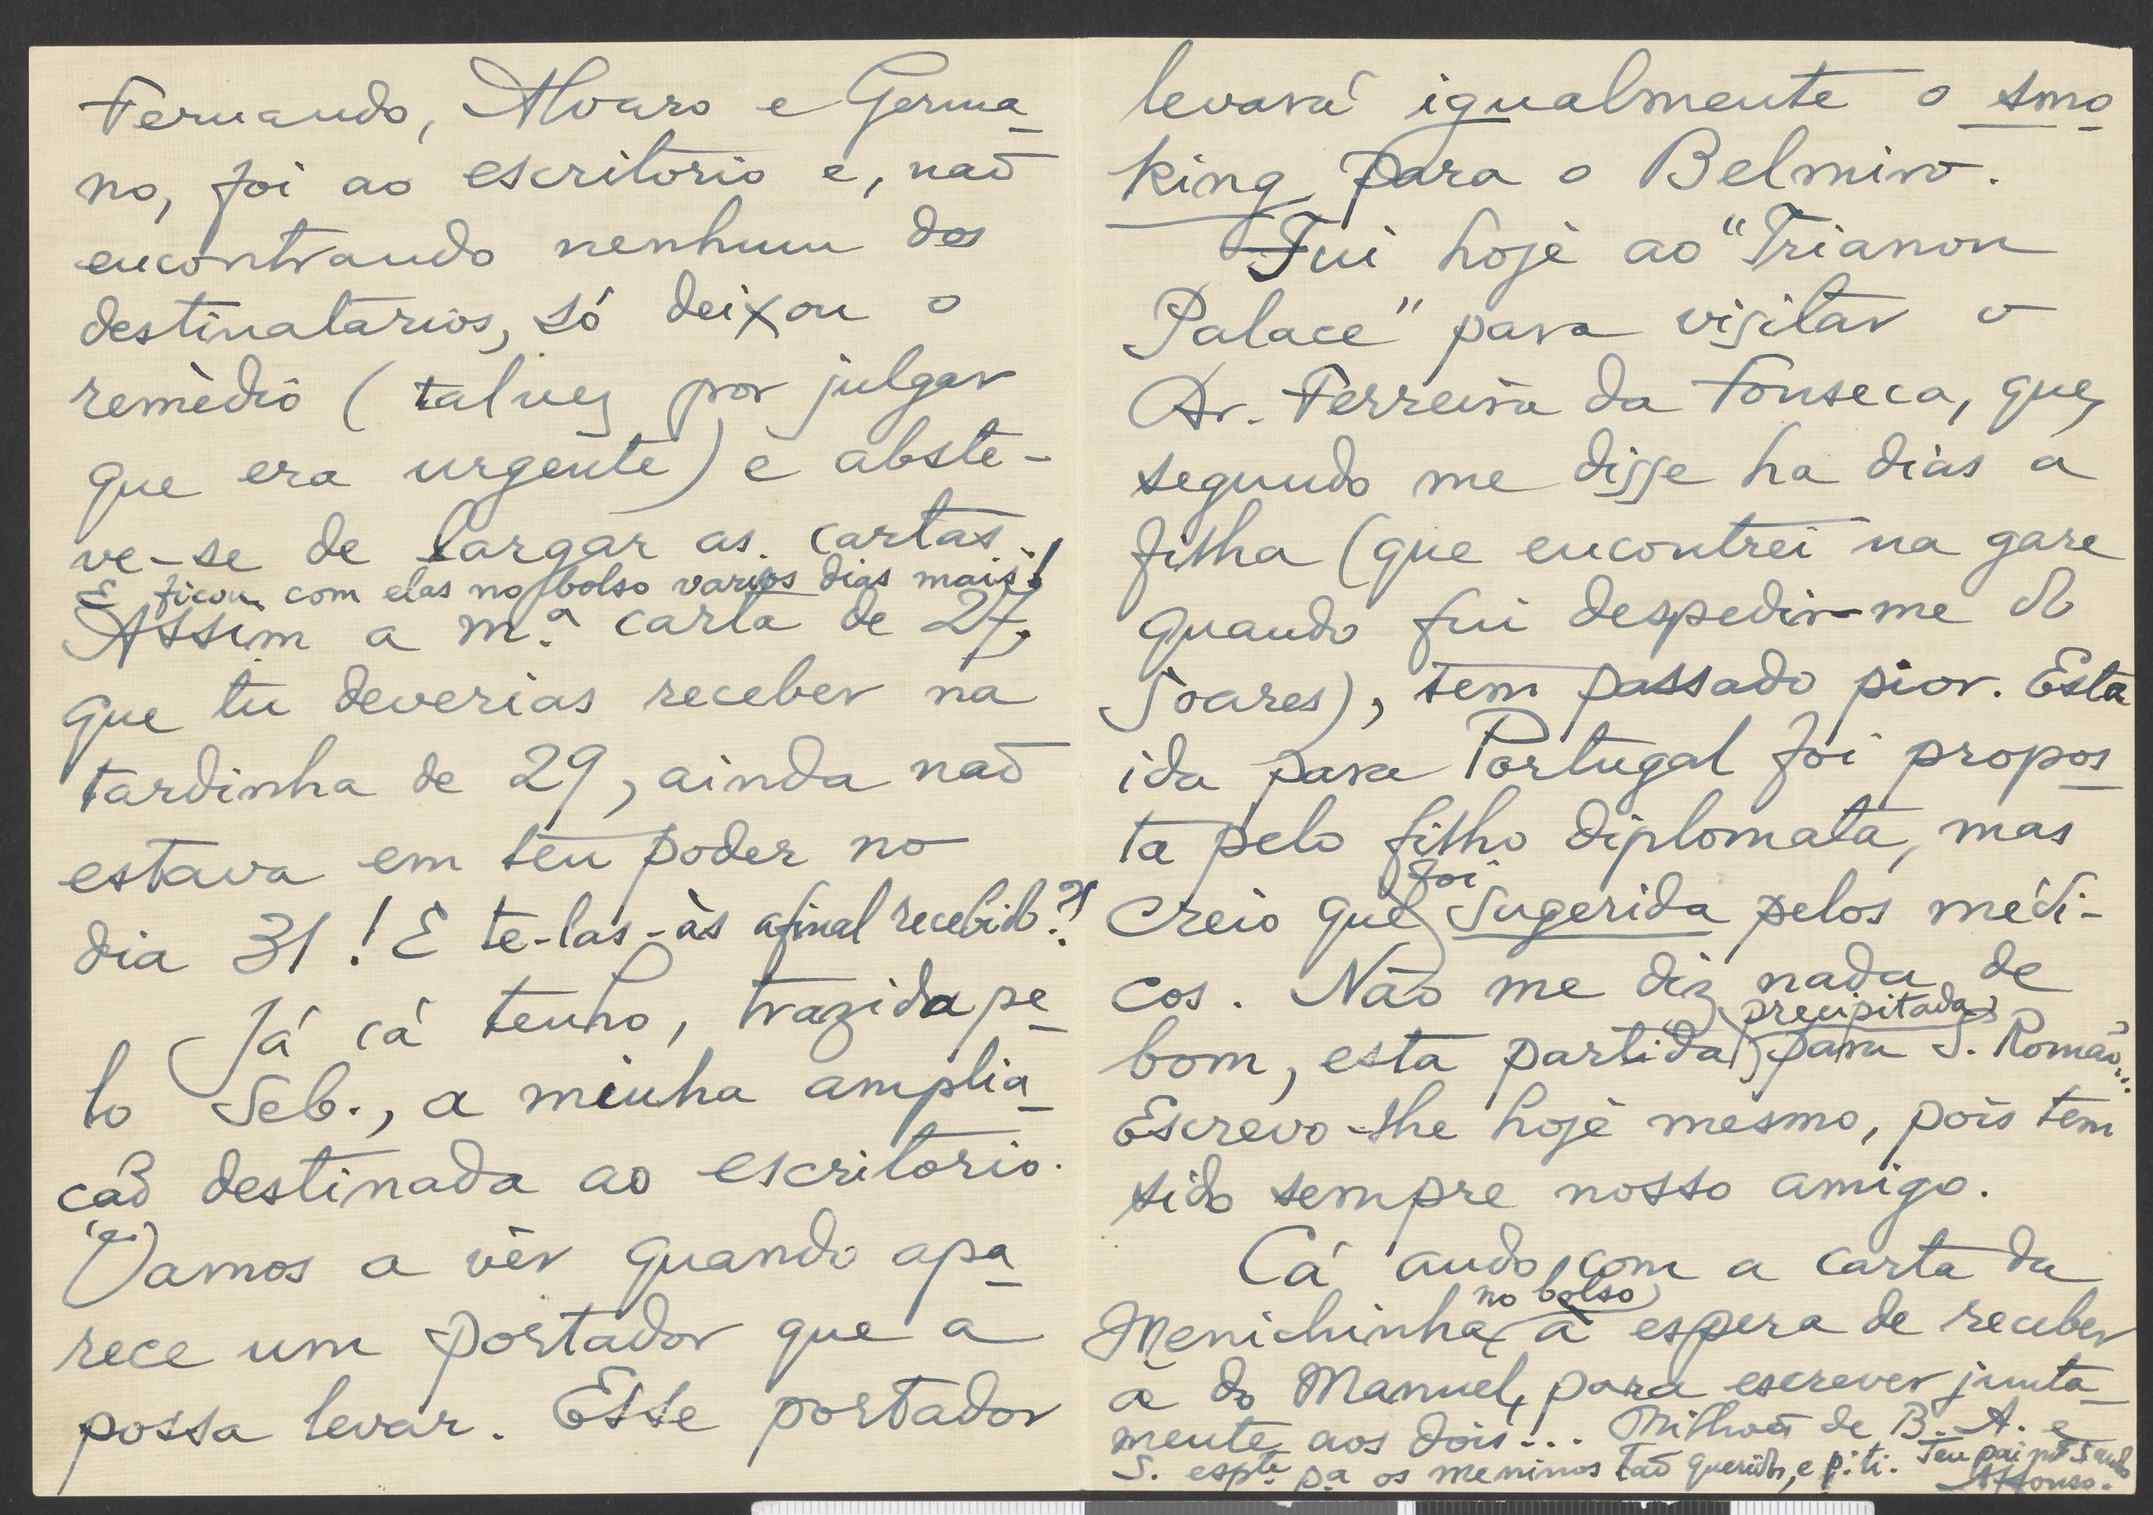 Fernando, Alvaro e Germa-
no, foi ao escritorio e, naõ
encontrando nenhum dos
destinatarios, só deixou o
remèdio (talvez por julgar
que era urgente) e abste-
ve-se de largar as cartas.
E ficou com elas no bolso varios dias mais!
Assim a m.ª carta de 27,
que tu deverias receber na
tardinha de 29, ainda naõ
estava em teu poder no
dia 31! E te-las-às afinal recebido?!
Já cá tenho, trazida pe-
lo Seb., a minha amplia-
çaõ destinada ao escritorio.
Vamos a vêr quando apa-
rece um portador que a
possa levar. Esse portador
levará igualmente o smo-
king para o Belmiro.
Fui hoje ao "Trianon
Palace" para visitar o
Dr. Ferreira da Fonseca, que,
segundo me disse ha dias a
filha (que encontrei na gare
quando fui despedir-me do
Soares), tem passado pior. Esta
ida para Portugal foi propos-
ta pelo filho diplomata, mas
creio que foi sugerida pelos médi-
cos. Não me diz nada de
bom, esta partida precipitada para S. Romão...
Escrevo-lhe hoje mesmo, pois tem
sido sempre nosso amigo.
Cá ando com a carta da
Menichinha no bolso à espera de receber
a do Manuel, para escrever junta-
mente aos dois... Milhões de B. A. e
S. espte pa os meninos taõ queridos, e p: ti. Teu pai mto
Affonso.